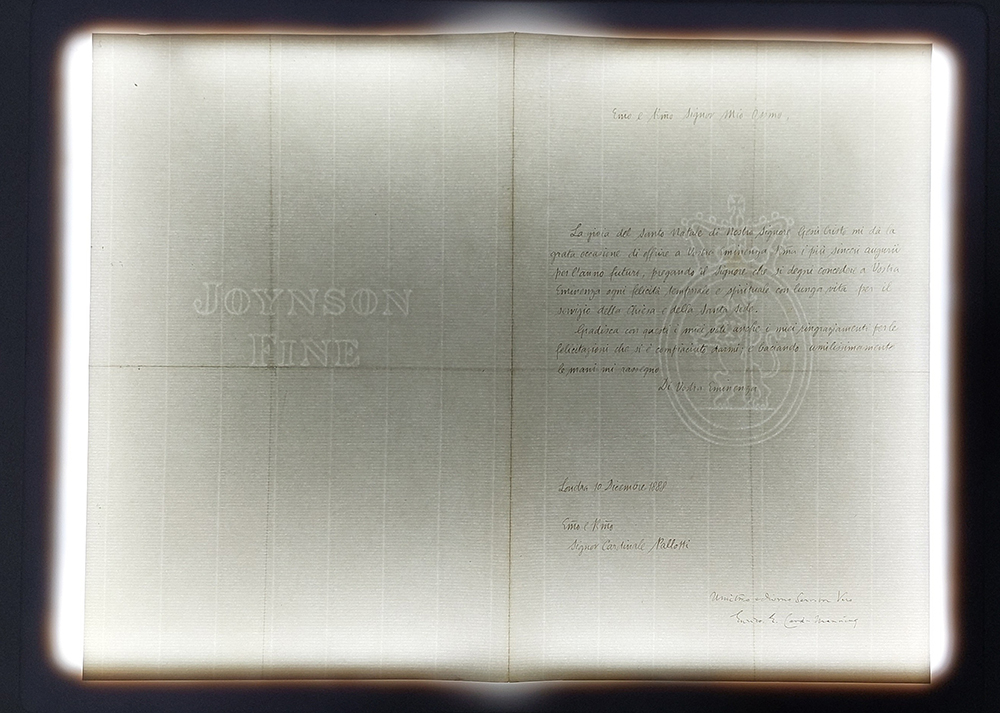 JOYNSON
FINE
Emo e Rmo Signor Mio Ossmo,
La gioia del Santo Natale di Nostro Signore Gesù Cristo mi dà la
grata occasione di offrire a Vostra Eminenza i più sinceri augurii
per l'anno futuro, pregando il Signore che si degni concedere a Vostra
Eminenza ogni felicità temporale e spirituale con lunga vita per il
servizio della Chiesa e della Santa Sede.
Gradisca con questi i miei voti anche i miei ringraziamenti per le
felicitazioni che si è compiaciuto darmi, e baciando umilissimamente
le mani mi rassegno
Di Vostra Eminenza
Londra 10 Dicembre 1889
Emo e Rmo
Signor Cardinale Pallotti
Servitor Vero
Enrico E. Card. Manning